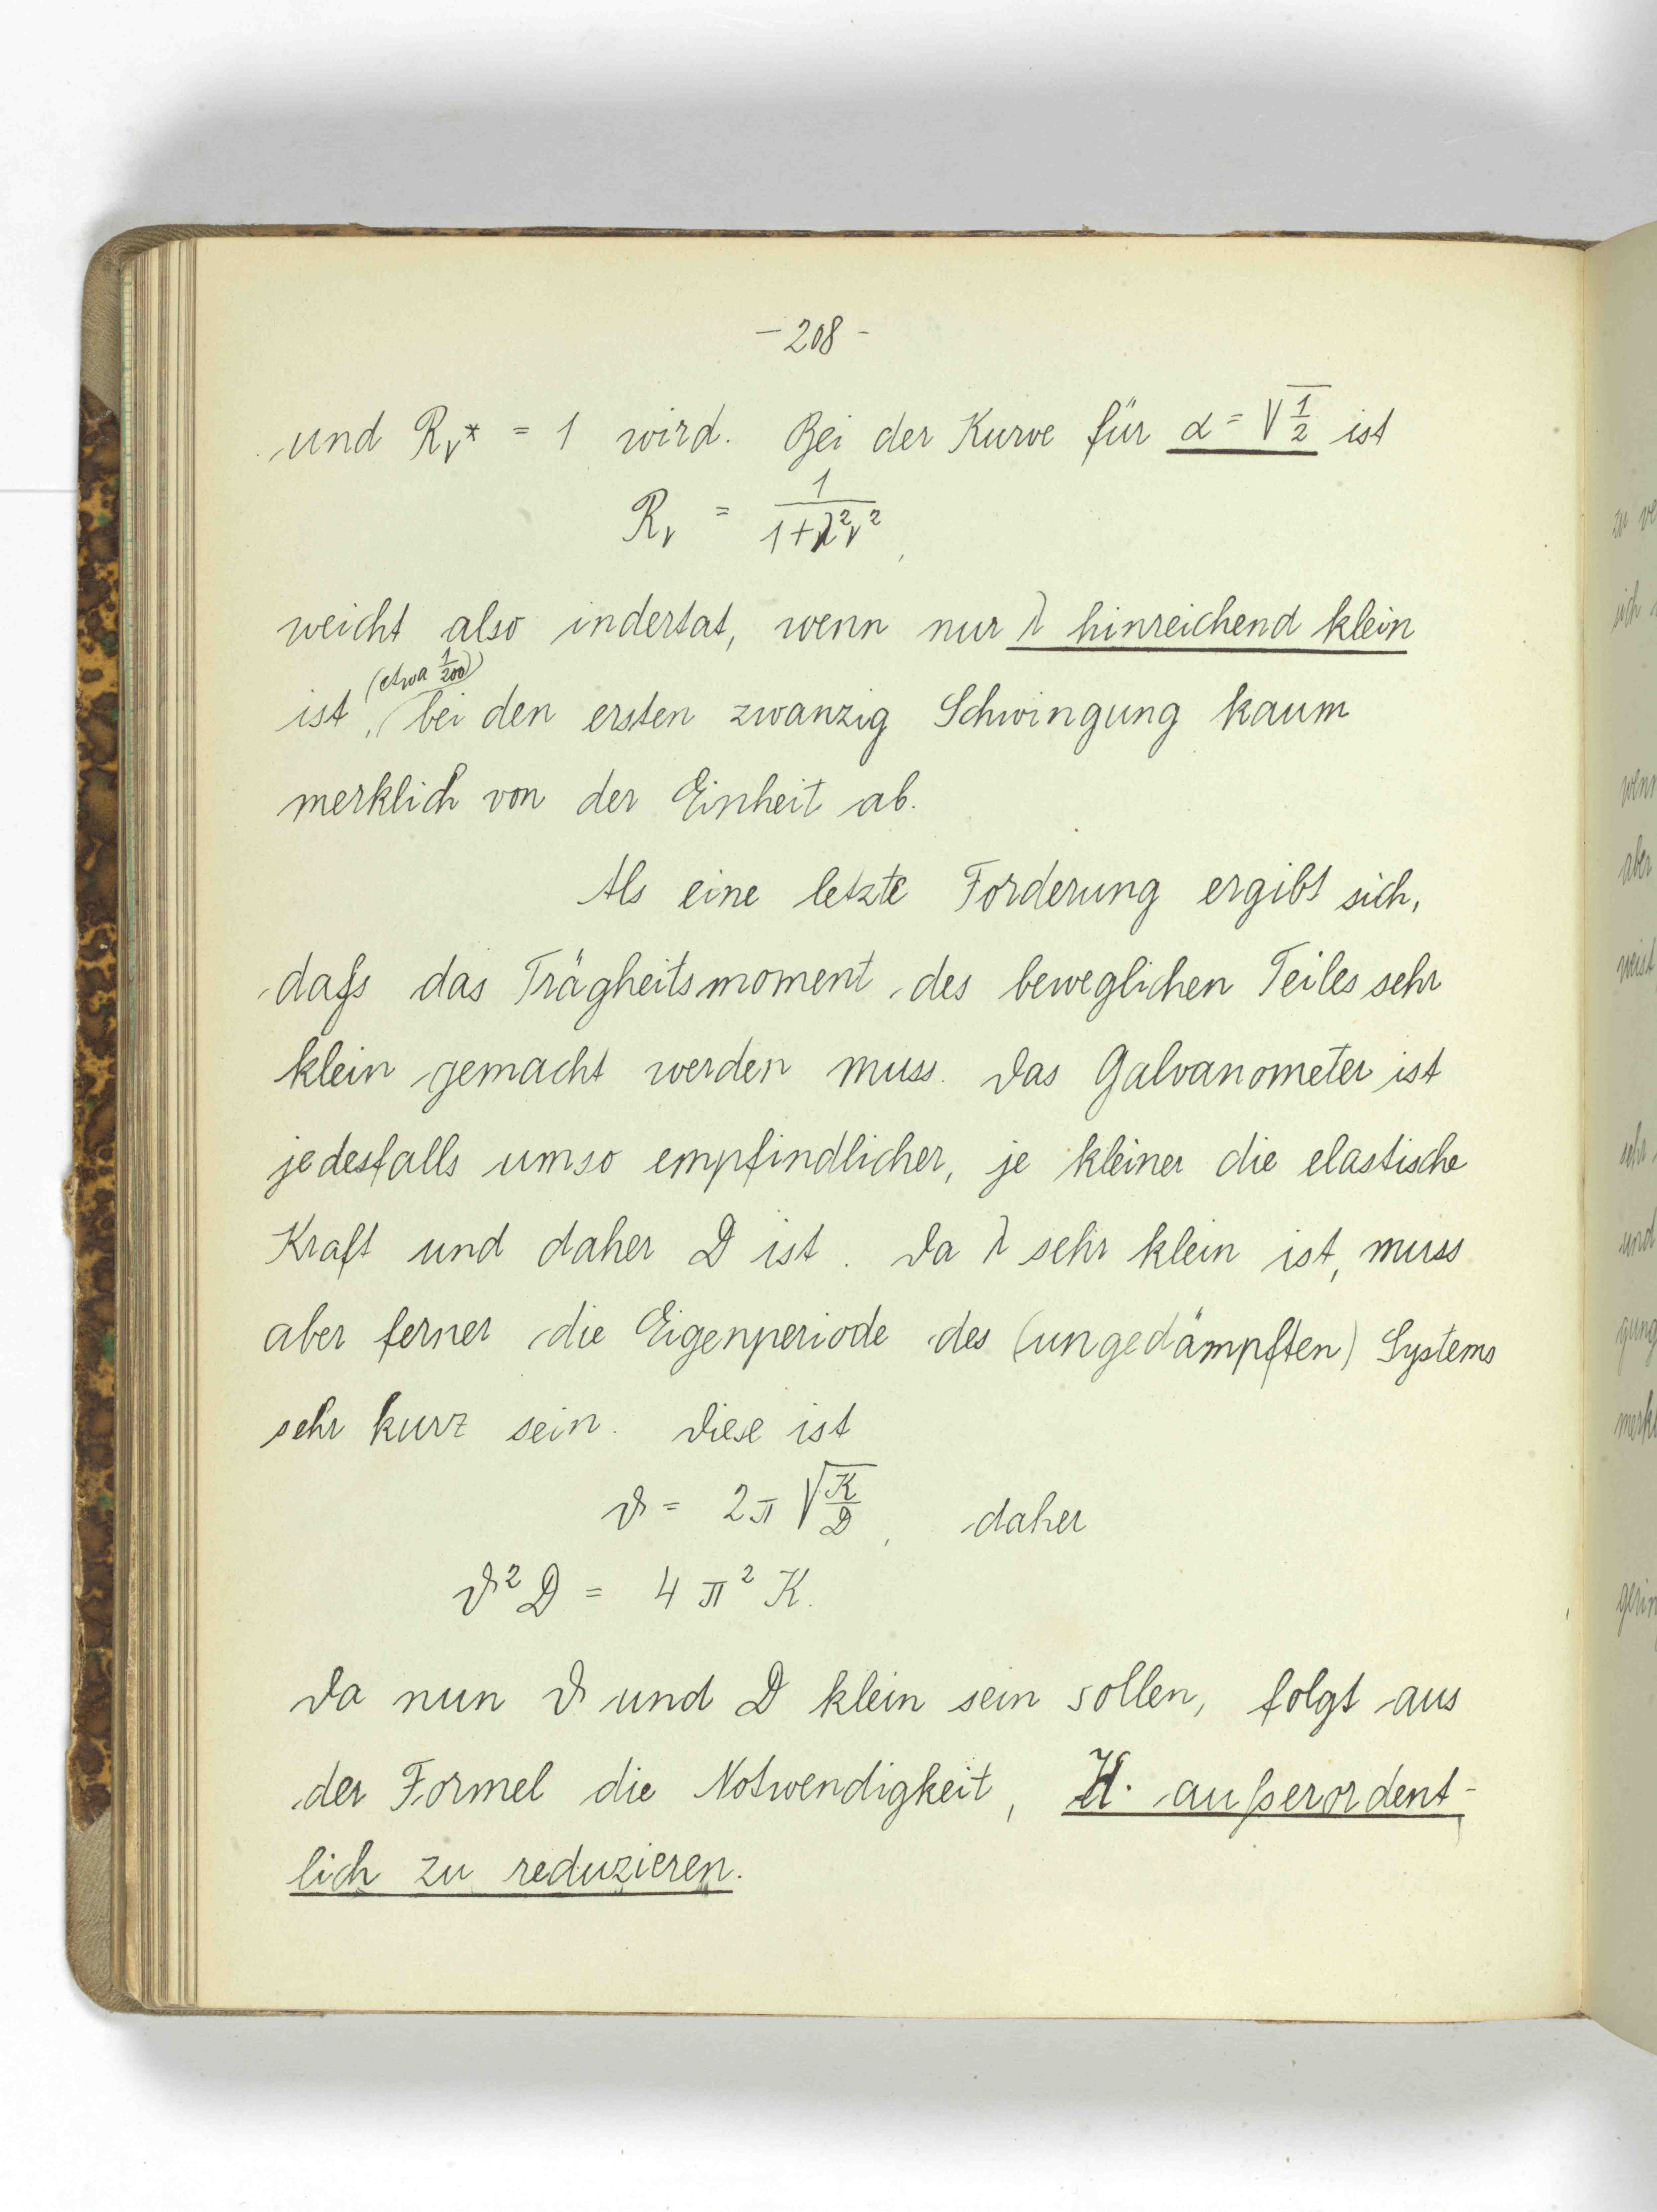 - 208 -
und Rᵥ* = 1 wird. Bei der Kurve für α = √(1/2) ist
Rᵥ = 1/(1+λ²ν²),
weicht also indertat, wenn nur λ hinreichend klein
(etwa 1/200)
ist, bei den ersten zwanzig Schwingung kaum
merklich von der Einheit ab.
Als eine letzte Forderung ergibt sich,
dafs das Trägheitsmoment des beweglichen Teiles sehr
klein gemacht werden muss. Das Galvanometer ist
jedesfalls umso empfindlicher, je kleiner die elastische
Kraft und daher D ist. Da λ sehr klein ist, muss
aber ferner die Eigenperiode des (ungedämpften) Systems
sehr kurz sein. Diese ist
ϑ = 2π √(K/D), daher
ϑ²D = 4π²K.
Da nun ϑ und D klein sein sollen, folgt aus
der Formel die Notwendigkeit, K außerordent-
lich zu reduzieren.